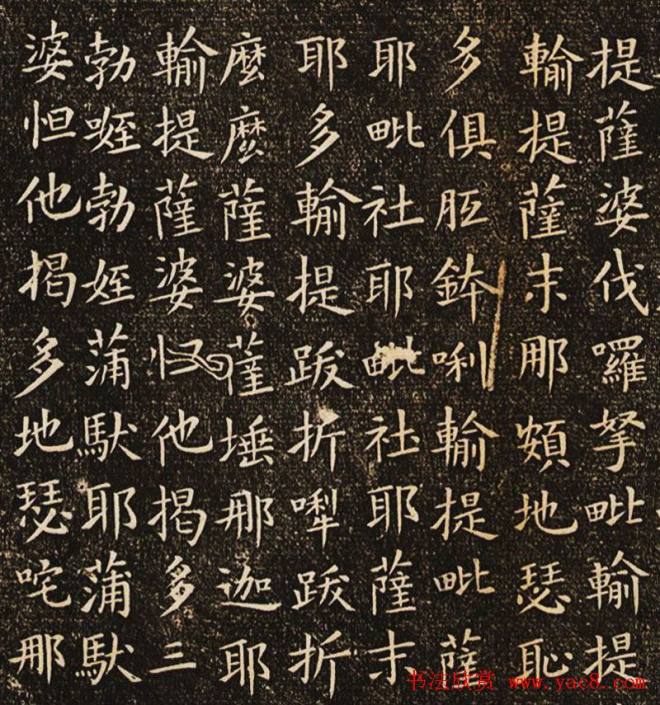 提薩婆伐囉拏毗輸提
輸提薩末那頞地瑟耻
多俱胝鉢唎輸提毗薩
耶毗社耶毗社耶薩末
耶多輸提跋折犁跋折
麼麼薩婆薩埵那迦耶
輸提薩婆怛他揭多三
勃勃姪蒲馱耶蒲馱
婆怛他揭多地瑟咤那
书法欣赏 www.yac8.com